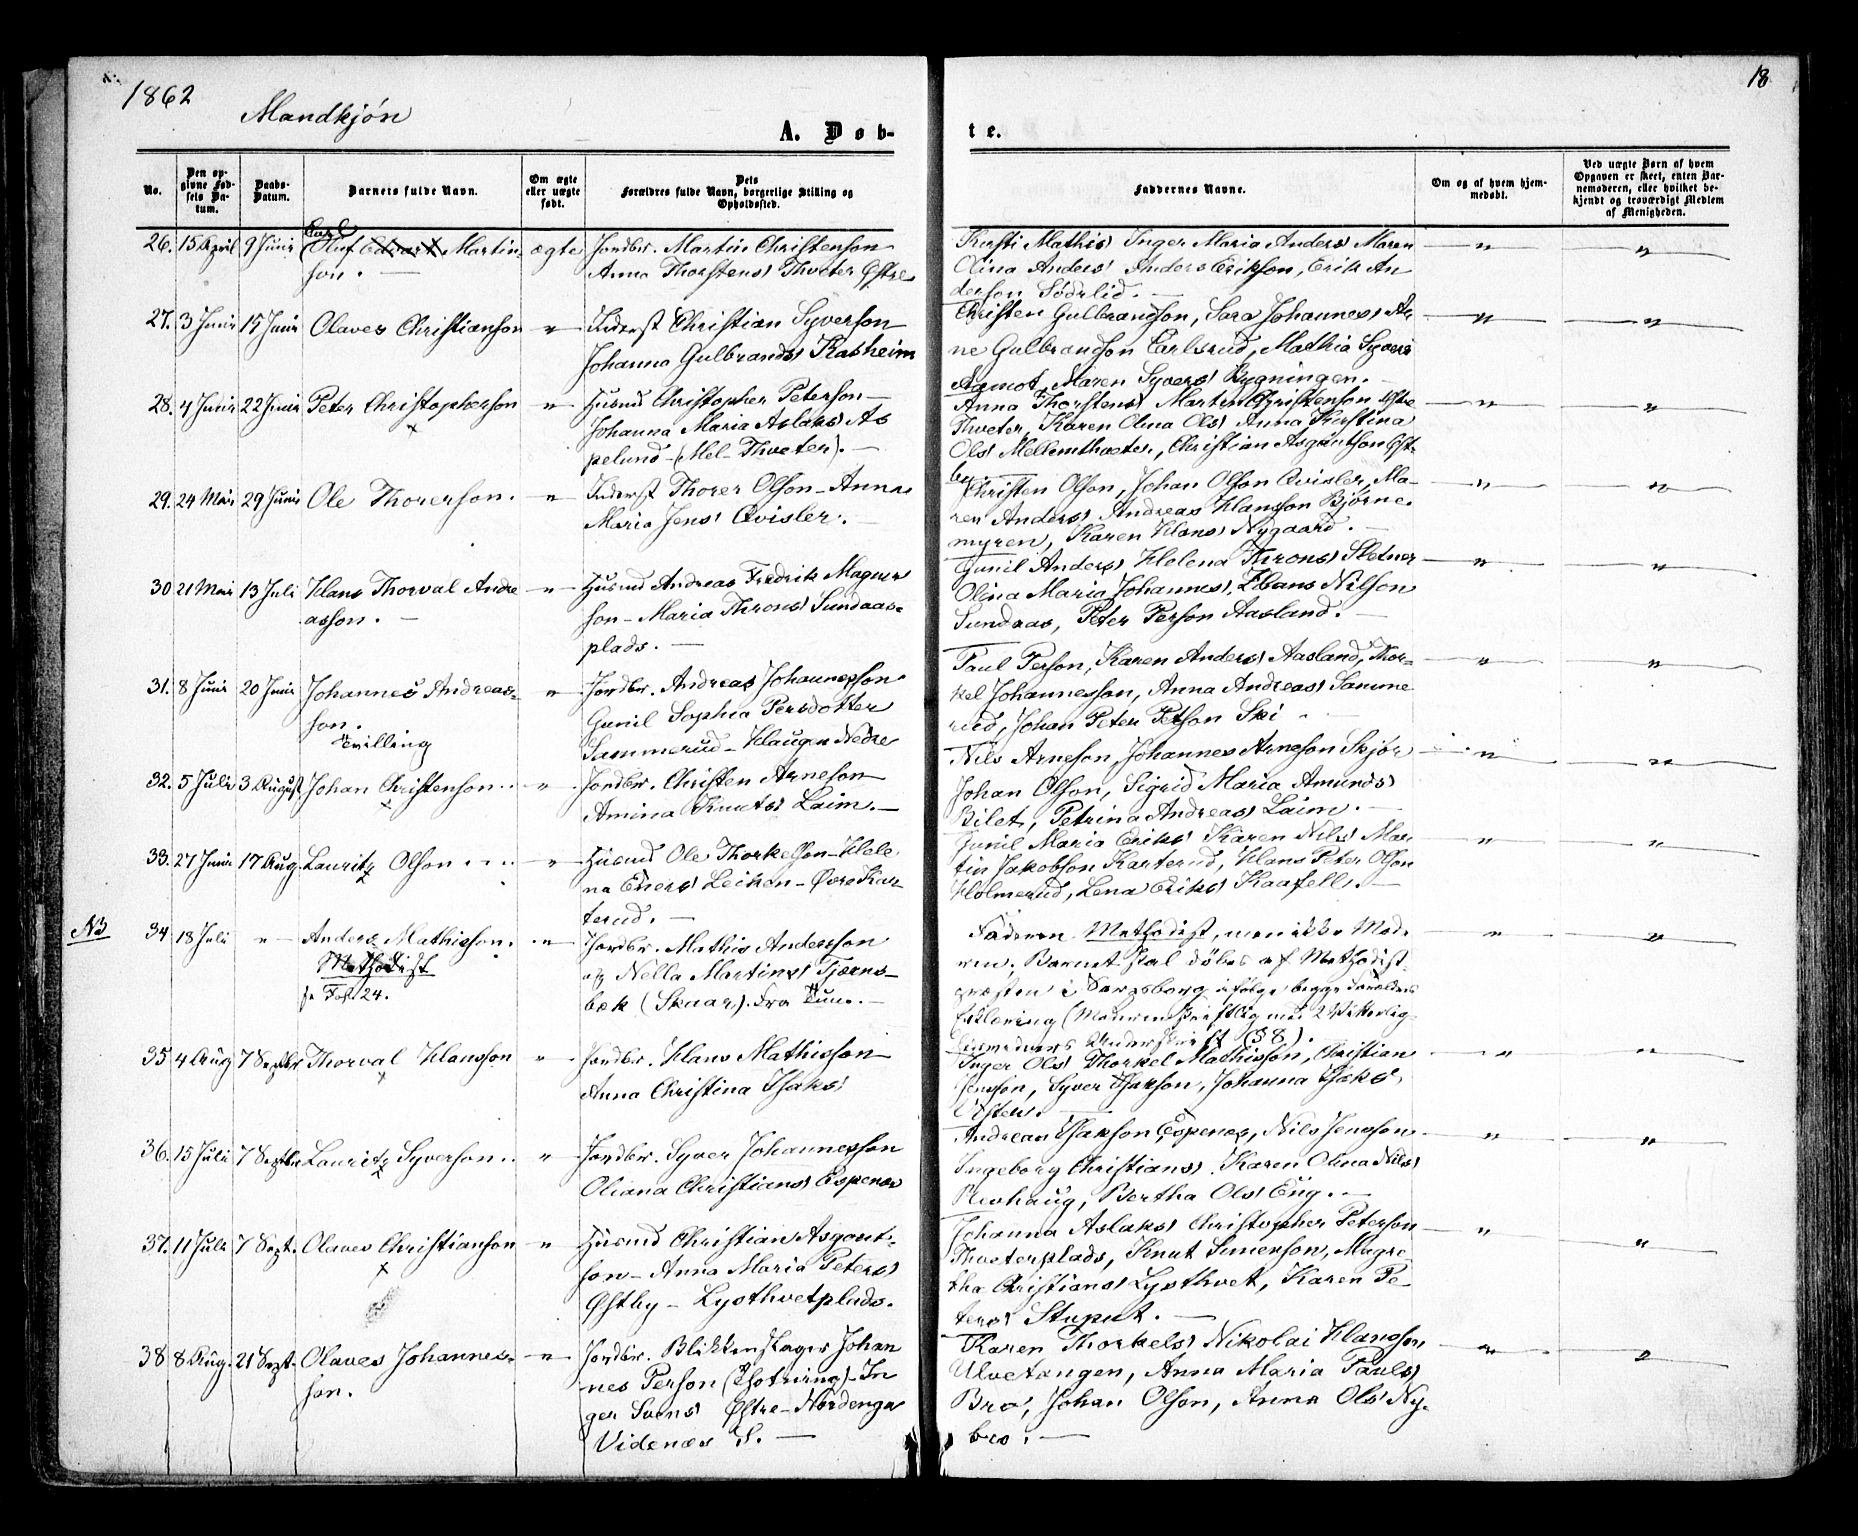 1862
Mandkjøn
18
A. Døb-
te.
No.
Den op-
givne Fød-
sels Da-
tum.
Daabs-
Datum.
Barnets fulde Navn.
Om ægte
eller uægte
født.
Dets
Forældres fulde Navn, borgerlige Stilling og
Opholdssted.
Faddernes Navne.
Om og af hvem hjem-
medøbt.
Ved uægte Børn af hvem
Opgaven er skeet, enten Bar-
nemoderen, eller hvilket be-
kjendt og troværdigt Medlem
af Menigheden.
26. 15 April 9 Juni Carl Oluf Edvart Martin-
son.
ægte
Jordbr. Martin Christenson
Anna Thorstens Thveter Østre
Kirsti Mathis Inger Maria Anders Maren
Olina Anders Anders Erikson, Erik An
derson Södrlid.
27. 3 Juni 15 Juni Olaves Christianson "
Inderst Christian Syverson
Johanna Gulbrands Kasheim
Christen Gulbrandson, Sara Johannes Ar
ne Gulbrandson Carlsrud, Mathia Syvers
Aamot, Maren Syvers Bygningen.
28. 4 Juni 22 Juni Peter Christopherson "
Husmd Christopher Peterson
Johanna Maria Aslaks As
pelund (Mel-Thveter).
Anna Thorstens Martin Christenson Østre
Thveter, Karen Olina Ols Anna Kirstina
Ols Mellemthveter, Christian Asgautson Øst-
by
29. 24 Mai 29 Juni Ole Thorerson. "
Inderst Thorer Olson - Anna
Maria Jens Qvisler.
Christen Olson, Johan Olson Qvisler, Ma-
ren Anders Andreas Hansson Bjørne-
myren, Karen Hans Nygaard.
30 21 Mai 13 Juli Hans Thorval Andre
asson.
"
Husmd Andreas Fredrik Magnus
son - Maria Throns Sundaas-
plads.
Gunil Anders Helena Throns Sletner
Olina Maria Johannes, Hans Nilson
Sundaas, Peter Person Aasland.
31. 8 Juni 20 Juni Johannes Andreas-
son.
Tvilling
"
Jordbr. Andreas Johannesson
Gunil Sophia Persdotter
Sammerud - Haugen Nedre
Paul Person, Karen Anders Aasland, Thor-
kel Johannesson, Anna Andreas Samme
rud, Johan Peter Petson Ski
32. 5 Juli 3 August Johan Christenson "
Jordbr. Christen Arneson
Amina Knuts Laim.
Nils Arneson, Johannes Arneson Skjør
Johan Olson, Sigrid Maria Amunds
Bilet, Petrina Andreas Laim.
33. 27 Juni 17 Aug. Lauritz Olson "
Husmd Ole Thorkelson - Hele
na Eners Leiken - Øvre Kar-
terud.
Gunil Maria Eriks Karen Nils Mar
tin Jakobson Karterud, Hans Peter Olson
Holmerud, Lena Eriks Kaafell.
NB
34 18 Juli " Anders Mathisson.
Methodist
se Fol. 24.
"
Jordbr. Mathis Andersson
og Nella Martins Tjerns-
bæk (Skuar). Fra Tune.
Faderen Methodist, men ikke Mod-
ren. Barnet skal døbes af Methodist
præsten i Sarpsborg ifølge begge Forældres
Erklæring (Moderen skriftlig med 2 Vitterlig-
Underskrift (§8).
35 4 Aug 7 Septbr Thorval Hansson "
Jordbr. Hans Mathisson
Anna Christina Isaks
Inger Ols Thorkel Mathisson, Christian
Jensson, Syver Isakson, Johanna Isaks,
Østen.
36. 15 Juli 7 Septbr Lauritz Syverson "
Jordbr. Syver Johannesson
Oliana Christians Espenes
Andreas Isakson Espenes, Nils Jensson
Ingeborg Christians, Karen Olina Nils
Revhaug, Bertha Ols Eng.
37. 11 Juli 7 Sept. Olaves Christianson "
Husmd Christian Asgaut-
son - Anna Maria Peters
Østby - Lysthvetplads.
Johanna Aslaks Christopher Peterson
Thveterplads, Knut Simenson, Magre
tha Christians Lysthvet, Karen Pe-
ters Stuput.
38 8 Aug. 21 Sept. Olaves Johannes-
son.
"
Jordbr. Blikkenslager Johan
nes Person - In
ger Svens Østre - Nordenga
Videnæs S.
Karen Thorkels, Nikolai Hansson,
Ulvetangen, Anna Maria Pauls
Bra, Johan Olson, Anna Ols Ny-
bro.